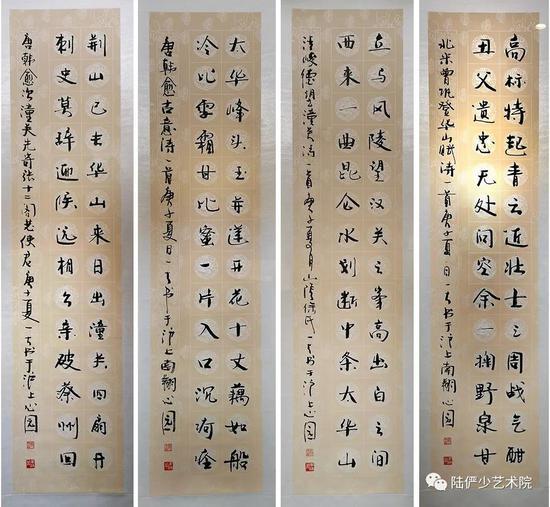 高标特起青云近壮士三周战气酣
丑父遗忠无处问空余一掬野泉甘
北宋曾巩登华山赋诗一首庚子夏日一书于沪上南翔心园
立马风陵望汉关三峯高出白云间
西来一曲昆仑水划断中条太华山
望潼关诗一首庚子夏月山阴一书于沪上心园
太华峰头玉井莲开花十丈藕如船
冷比雪霜甘比蜜一片入口沉疴痊
唐韩愈古意诗一首庚子夏日一书于沪上南翔心园
荆山已去华山来日出潼关四扇开
刺史莫辞迎候远相公亲破蔡州回
唐韩愈次潼关先寄张十二阁老使君庚子夏一书于沪上心园
陆俨少艺术院